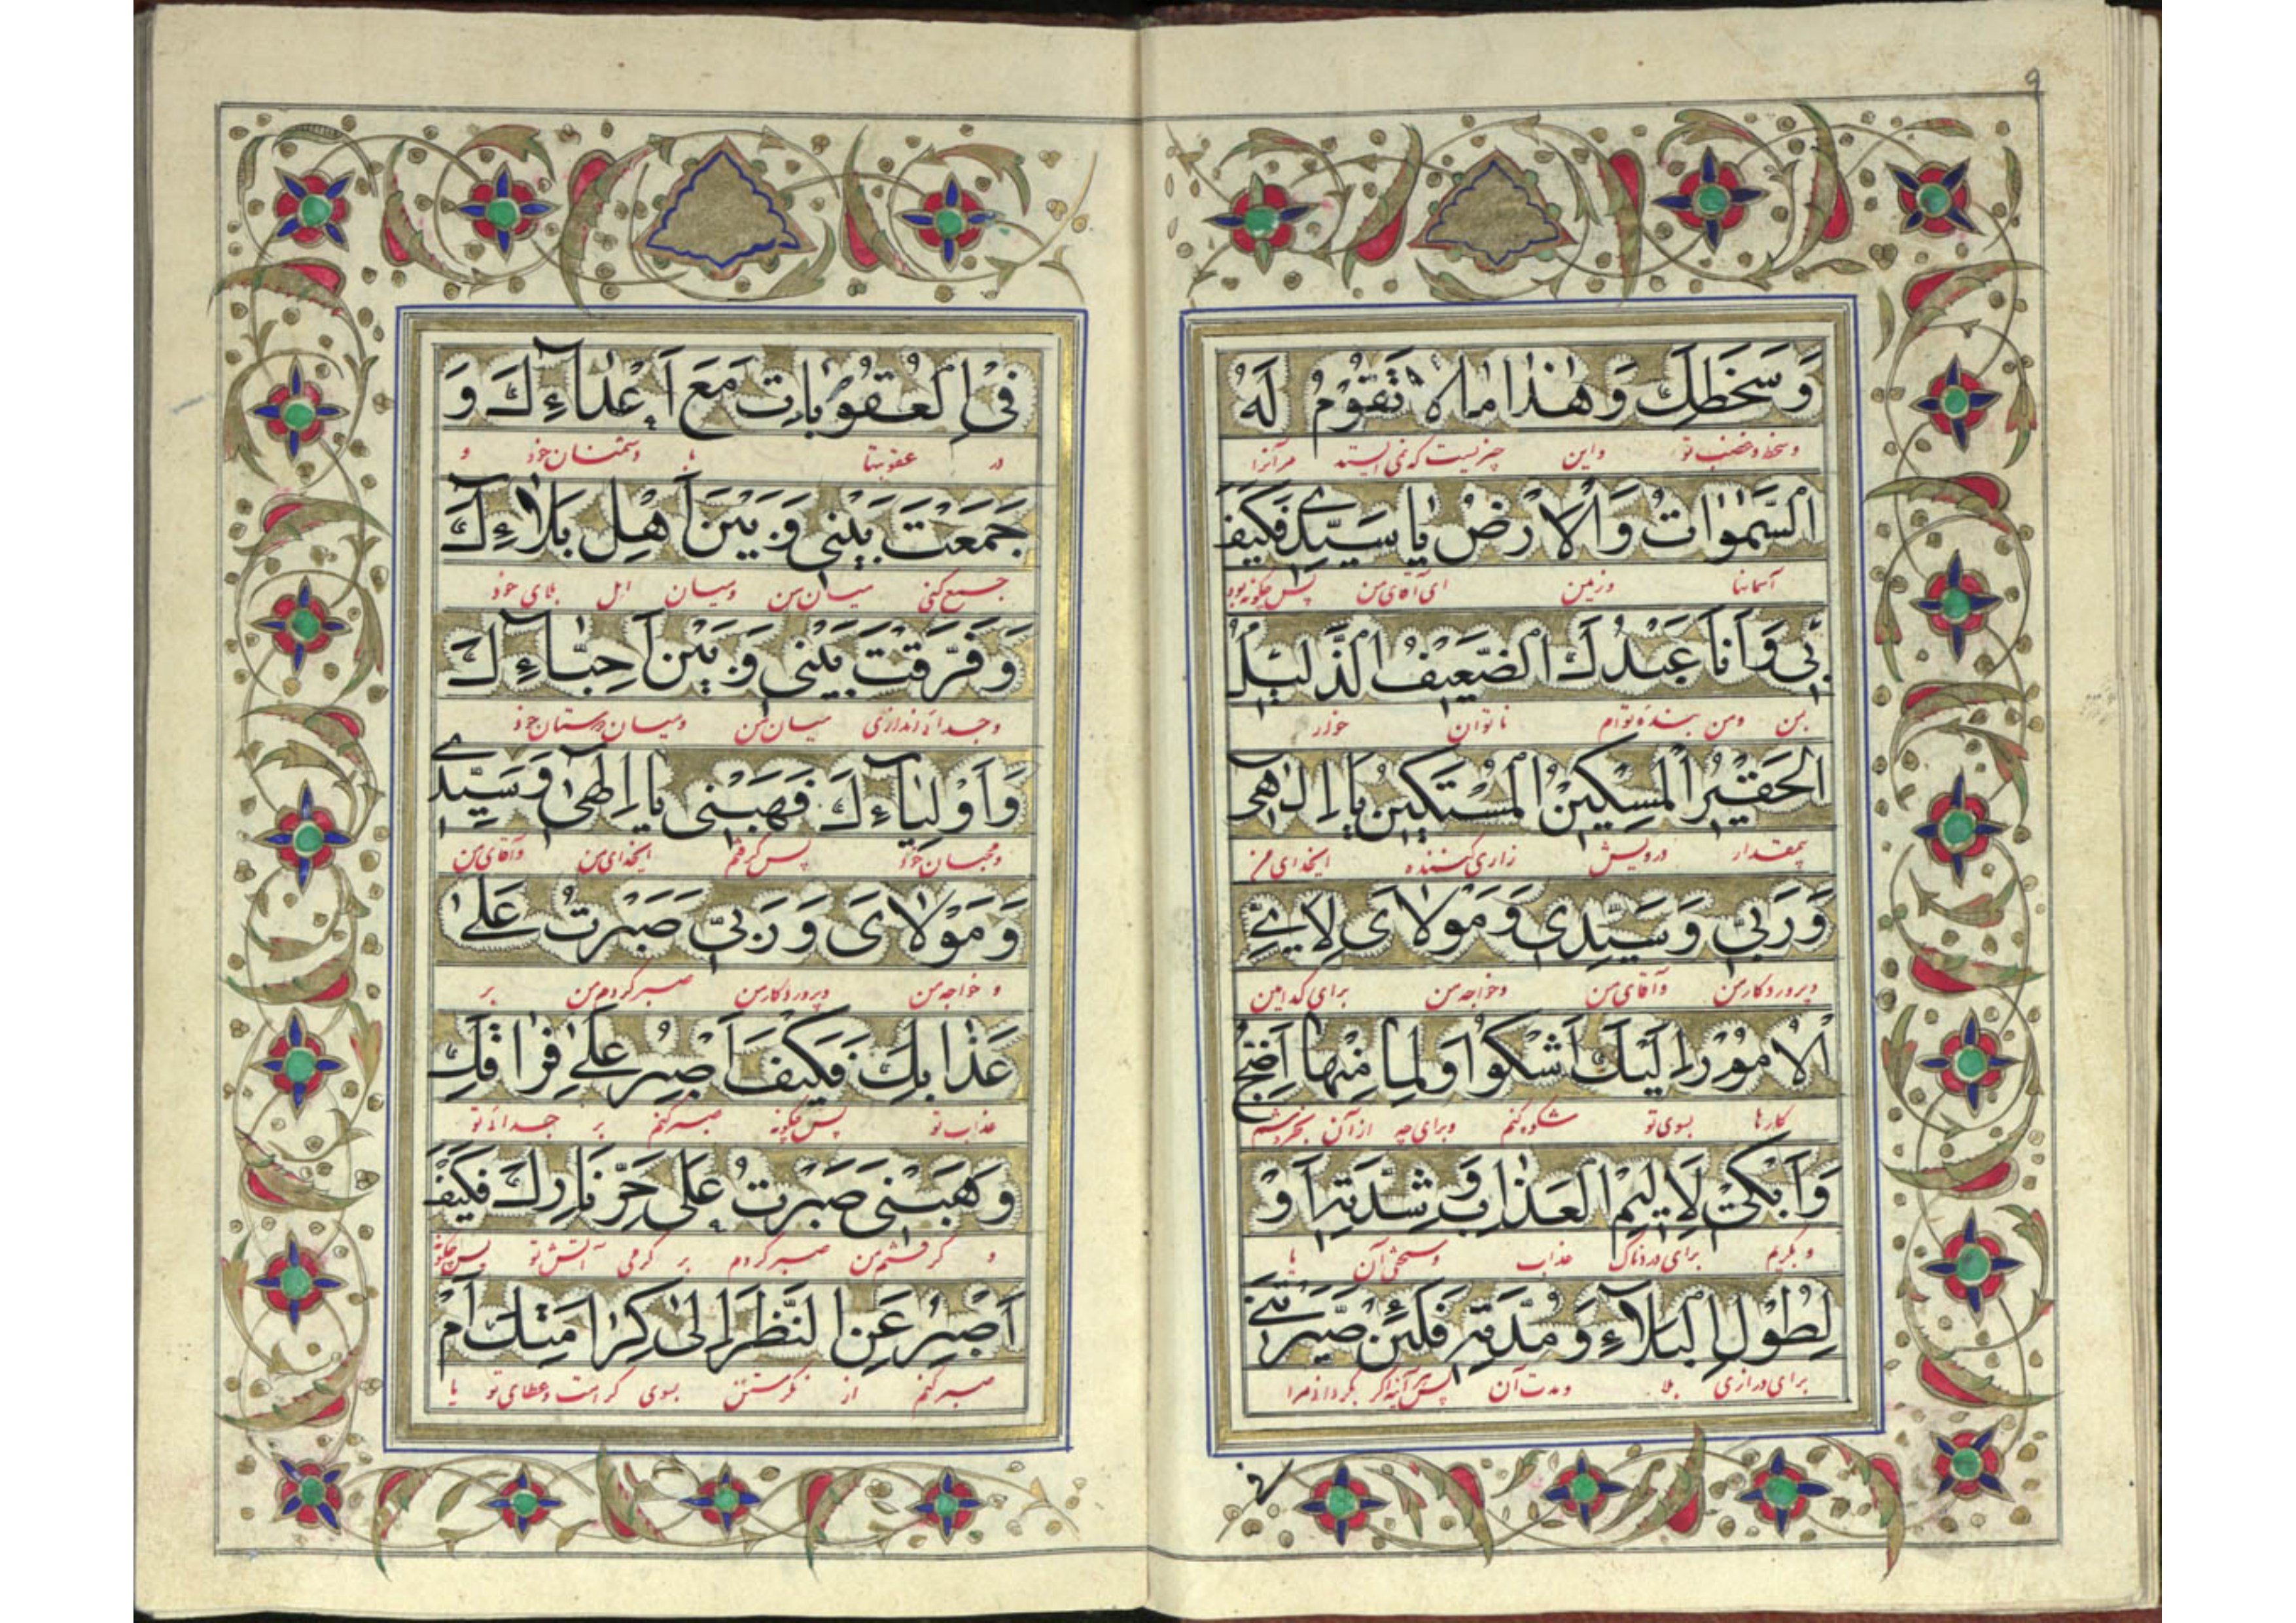 ۹
وَسَخَطِكَ وَهٰذا مالا تَقُوْمُ لَهُ
وسخط وغضب تو واین چیزیست که نمی ایستد مرآنرا
السَّمٰواتُ وَالْاَرْضُ یا سَیِّدِی فَکَیْفَ
آسمانها وزمین ای آقای من پس چگونه بود
بِی وَاَنَا عَبْدُكَ الضَّعیفُ الذَّلیلُ
بمن ومن بنده توام ناتوان خوار
الْحَقیرُ الْمِسْکینُ الْمُسْتَکینُ یا اِلٰهی
بیمقدار درویش زاری کننده ایخدای من
وَرَبّی وَسَیِّدِی وَمَوْلایَ لِاَیِّ
وپروردکار من وآقای من وخواجه من برای کدامین
الْاُمُوْرِ اِلَیْكَ اَشْکُوا وَلِما مِنْها اَضِجُّ
کارها بسوی تو شکوه کنم وبرای چه از آن بخروشم
وَاَبْکیْ لِاَلیمِ الْعَذابِ وَشِدَّتِهِ اَوْ
و بگریم برای دردناک عذاب وسختی آن یا
لِطُوْلِ الْبَلآءِ وَمُدَّتِهِ فَلَئِنْ صَیَّرْتَنی
برای درازی بلا ومدت آن پس هرآینه اگر بگردانی مرا
فی
فِی الْعُقُوْباتِ مَعَ اَعْدآءِكَ وَ
در عقوبتها با دشمنان خود و
جَمَعْتَ بَیْنی وَبَیْنَ اَهْلِ بَلآءِكَ
جمع کنی میان من ومیان اهل بلای خود
وَفَرَّقْتَ بَیْنی وَبَیْنَ اَحِبّآءِكَ
وجدائی اندازی میان من ومیان دوستان خود
وَاَوْلِیآءِكَ فَهَبْنی یا اِلٰهی وَسَیِّدی
ومحبان خود پس گرفتم ایخدای من وآقای من
وَمَوْلایَ وَرَبّی صَبَرْتُ عَلیٰ
و خواجه من وپروردکار من صبر کردم من بر
عَذابِكَ فَکَیْفَ اَصْبِرُ عَلیٰ فِراقِكَ
عذاب تو پس چگونه صبر کنم بر جدائی تو
وَهَبْنی صَبَرْتُ عَلی حَرِّ نارِكَ فَکَیْفَ
و گرفتم من صبر کردم بر گرمی آتش تو پس چگونه
اَصْبِرُ عَنِ النَّظَرِ اِلیٰ کَرامَتِكَ اَمْ
صبر کنم از نگرستن بسوی کرامت وعطای تو یا